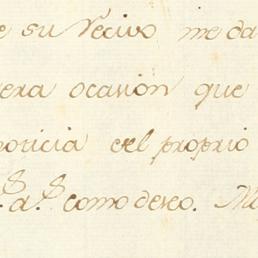 e su Recivo me da
era ocasion que
noticia el proprio
a.s como deseo. M